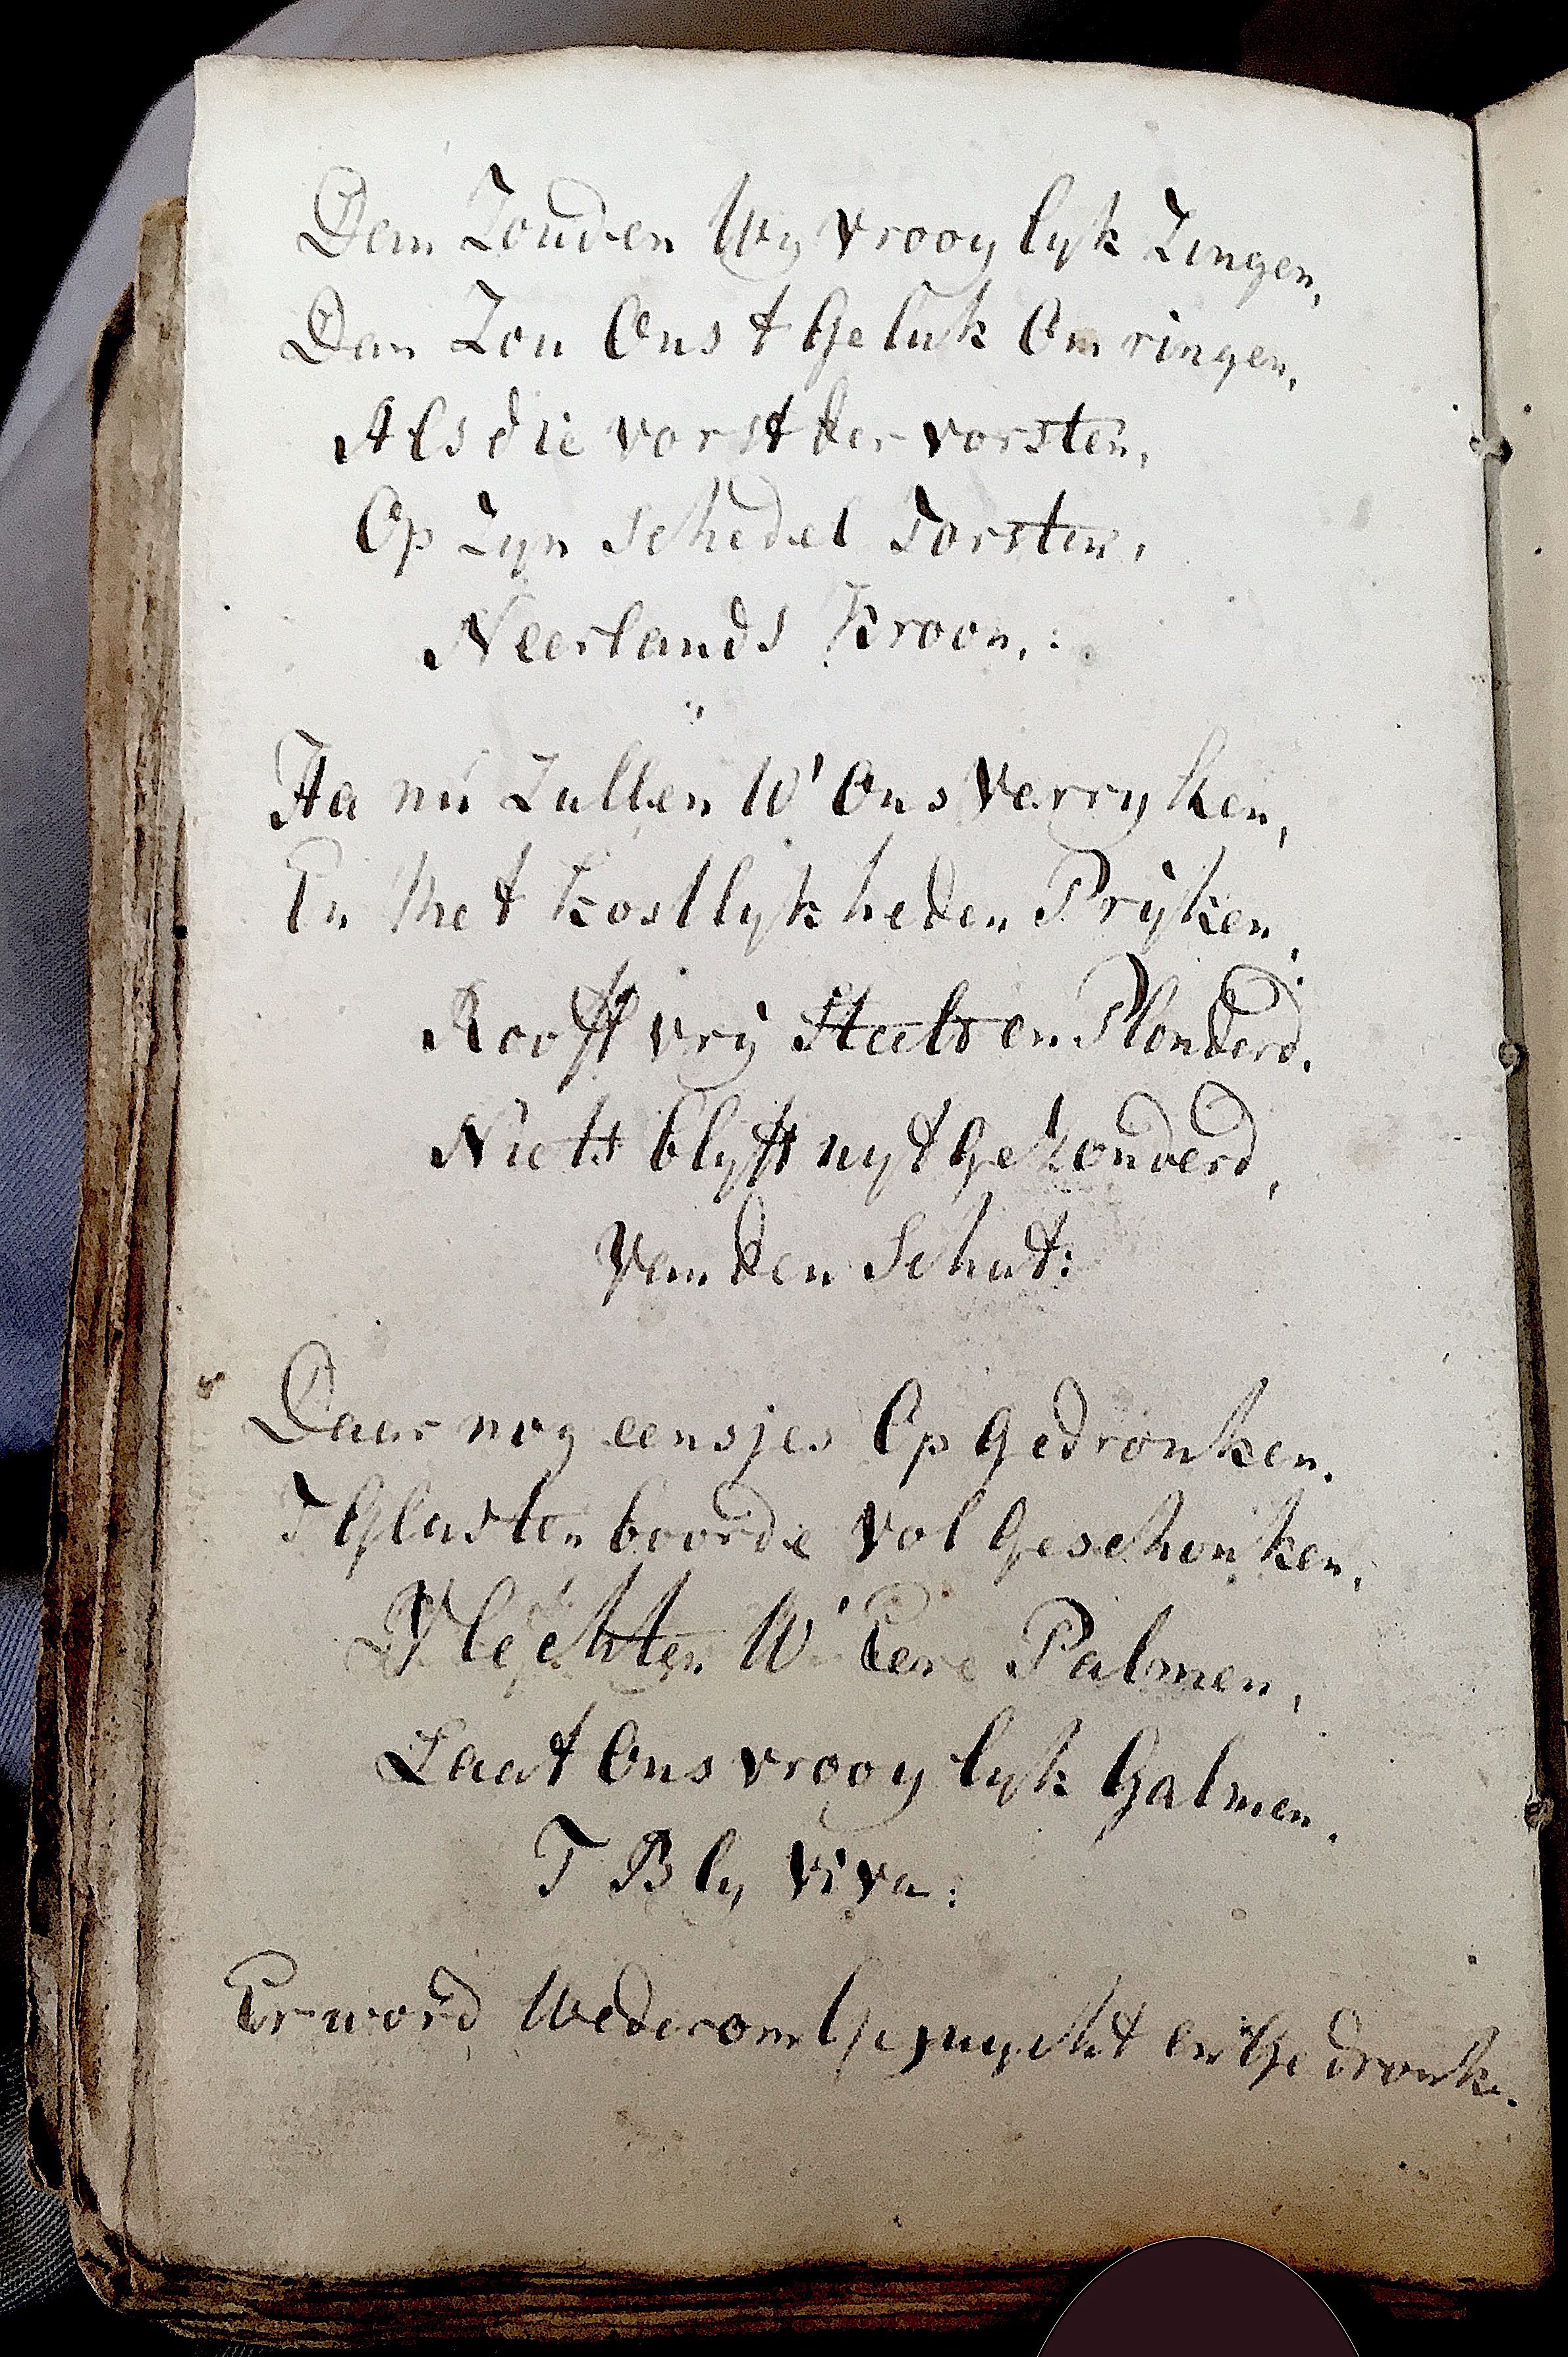 Dan Zouden Wy vrooylyk Zingen,
Dan Zou Ons t Geluk Omringen,
Als die vorst der vorsten,
Op Zyn Schedel Torsten,
Neerlands Kroon,:
Ha nu Zullen W' Ons Verryken,
En Met Kostlykheden Pryken,
Rooft vry Steelt en Plonderd,
Niets blyft uyt geZonderd,
Van den Schat:
Daar nog eensjes Op gedronken.
T Glas ten boorde vol geschonken,
Vlechten W' Eere Palmen,
Laat Ons vrooylyk Galmen.
T Bly viva:
Er word Wederom en Gedronke.